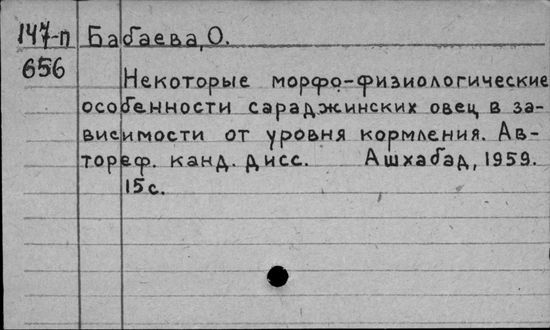 147-п Бабаева, О.
656
Некоторые морфо-физиологические
особенности сараджинских овец в за-
висимости от уровня кормления. Ав-
тореф. канд. дисс. Ашхабад, 1959.
15 с.